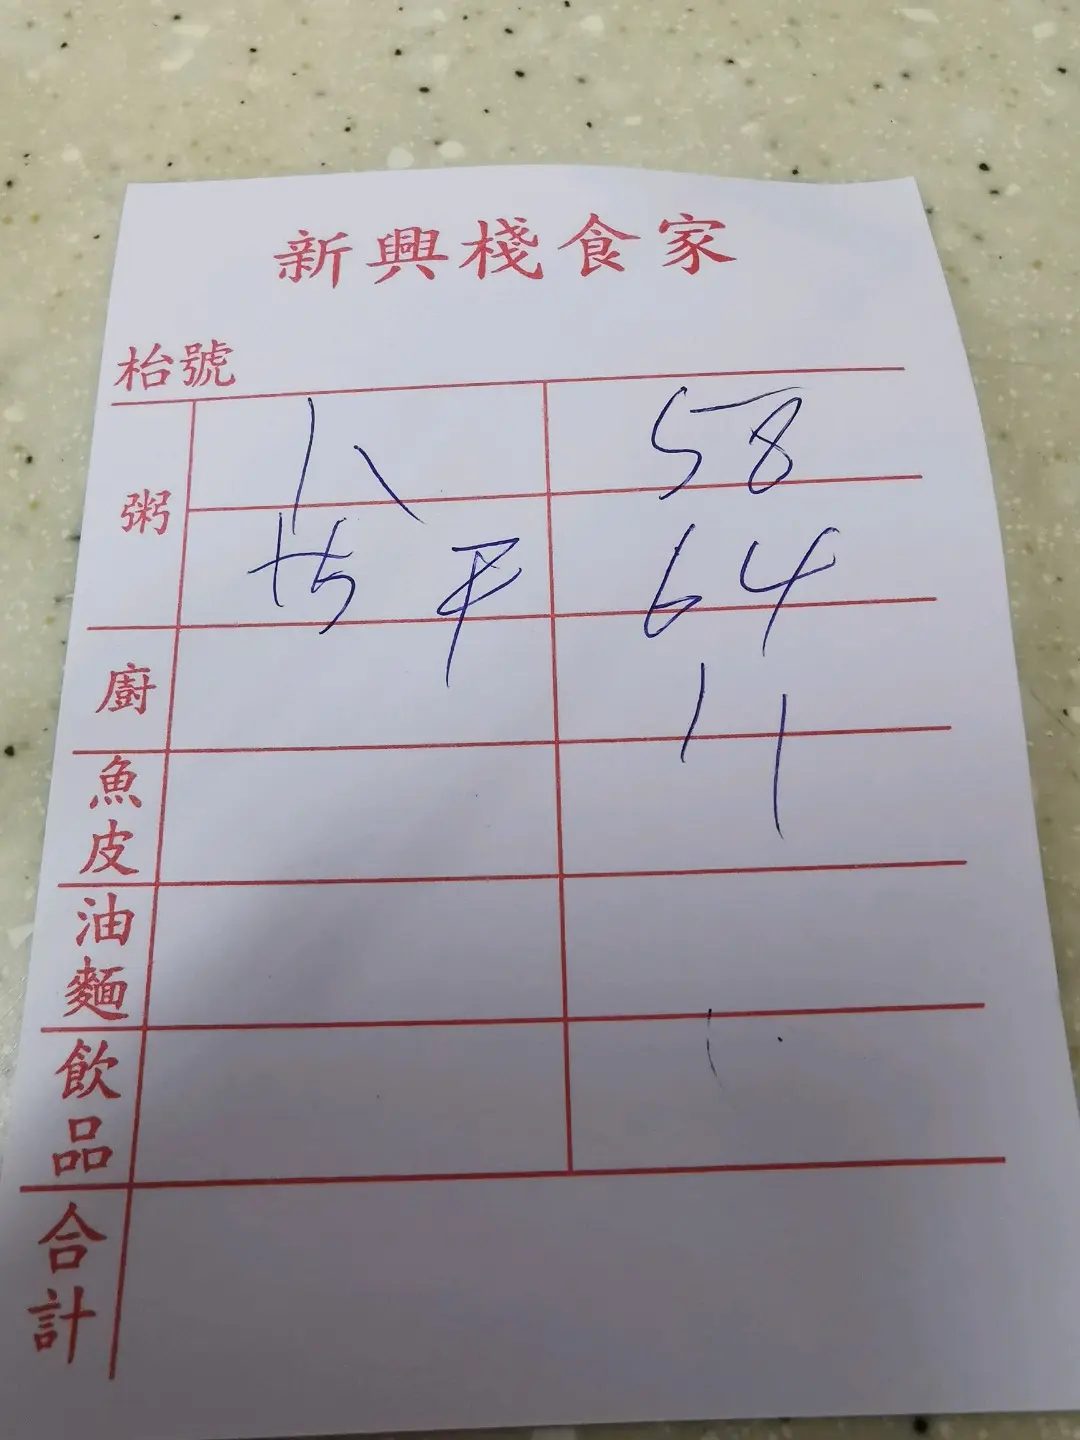 新興棧食家
枱號
粥
八 58
64
11
廚
魚皮
油麵
飲品
合計